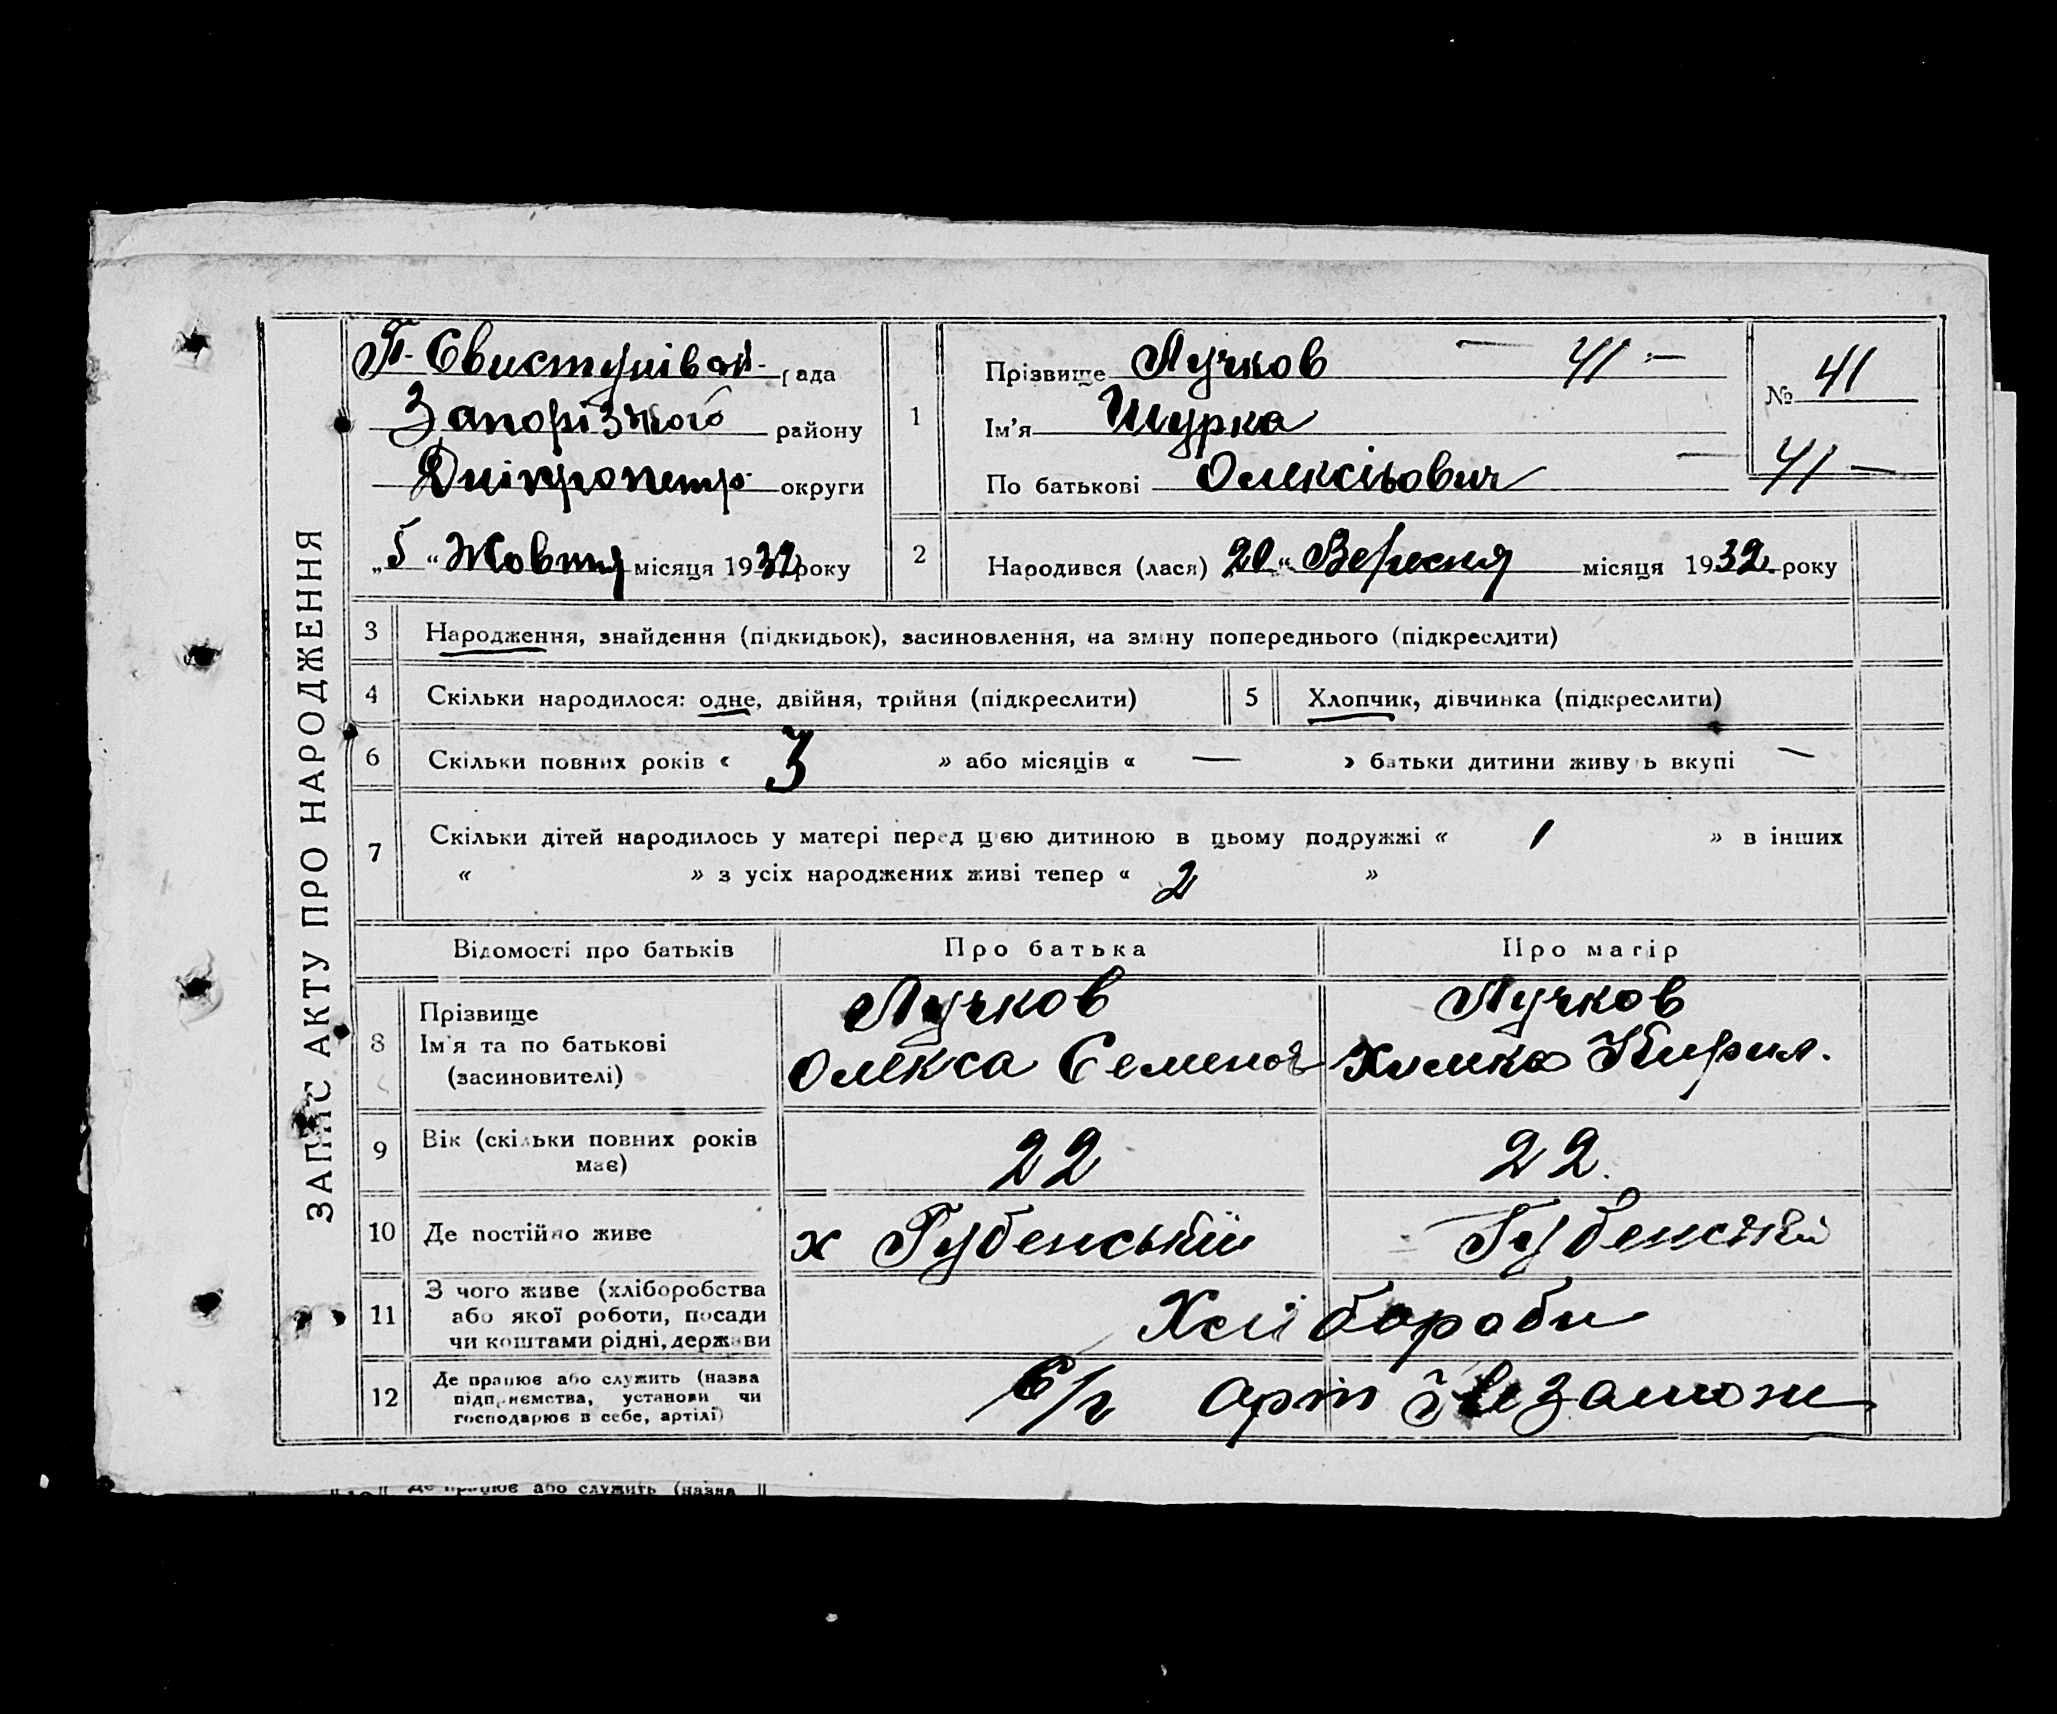 ЗАПИС АКТУ ПРО НАРОДЖЕННЯ
П-Свистунівськ. рада
Запорізького району
Дніпропетр. округи
„5“ Жовтня місяця 1932 року
1
Прізвище Лучков — 41 —
Ім'я Шурка
По батькові Олексійович
№ 41
— 41 —
2
Народився (лася) 20 „ Вересня місяця 1932 року
3 Народження, знайдення (підкидьок), засиновлення, на зміну попереднього (підкреслити)
4 Скільки народилося: одне, двійня, трійня (підкреслити) 5 Хлопчик, дівчинка (підкреслити)
6 Скільки повних років « 3 » або місяців « — » батьки дитини живуть вкупі —
7 Скільки дітей народилось у матері перед цією дитиною в цьому подружжі « 1 » в інших
« » з усіх народжених живі тепер « 2 »
Відомості про батьків Про батька Про матір
8 Прізвище Лучков Лучков
Ім'я та по батькові Олекса Семенов Химка Кирил.
(засиновителі)
9 Вік (скільки повних років має) 22 22.
10 Де постійно живе х Губенський Губенський
11 З чого живе (хліборобства
або якої роботи, посади
чи коштами рідні, держави Хлібороби
12 Де працює або служить (назва
підприємства, установи чи
господарює в себе, артілі) с/г арт Незаможн
Де працює або служить (назва